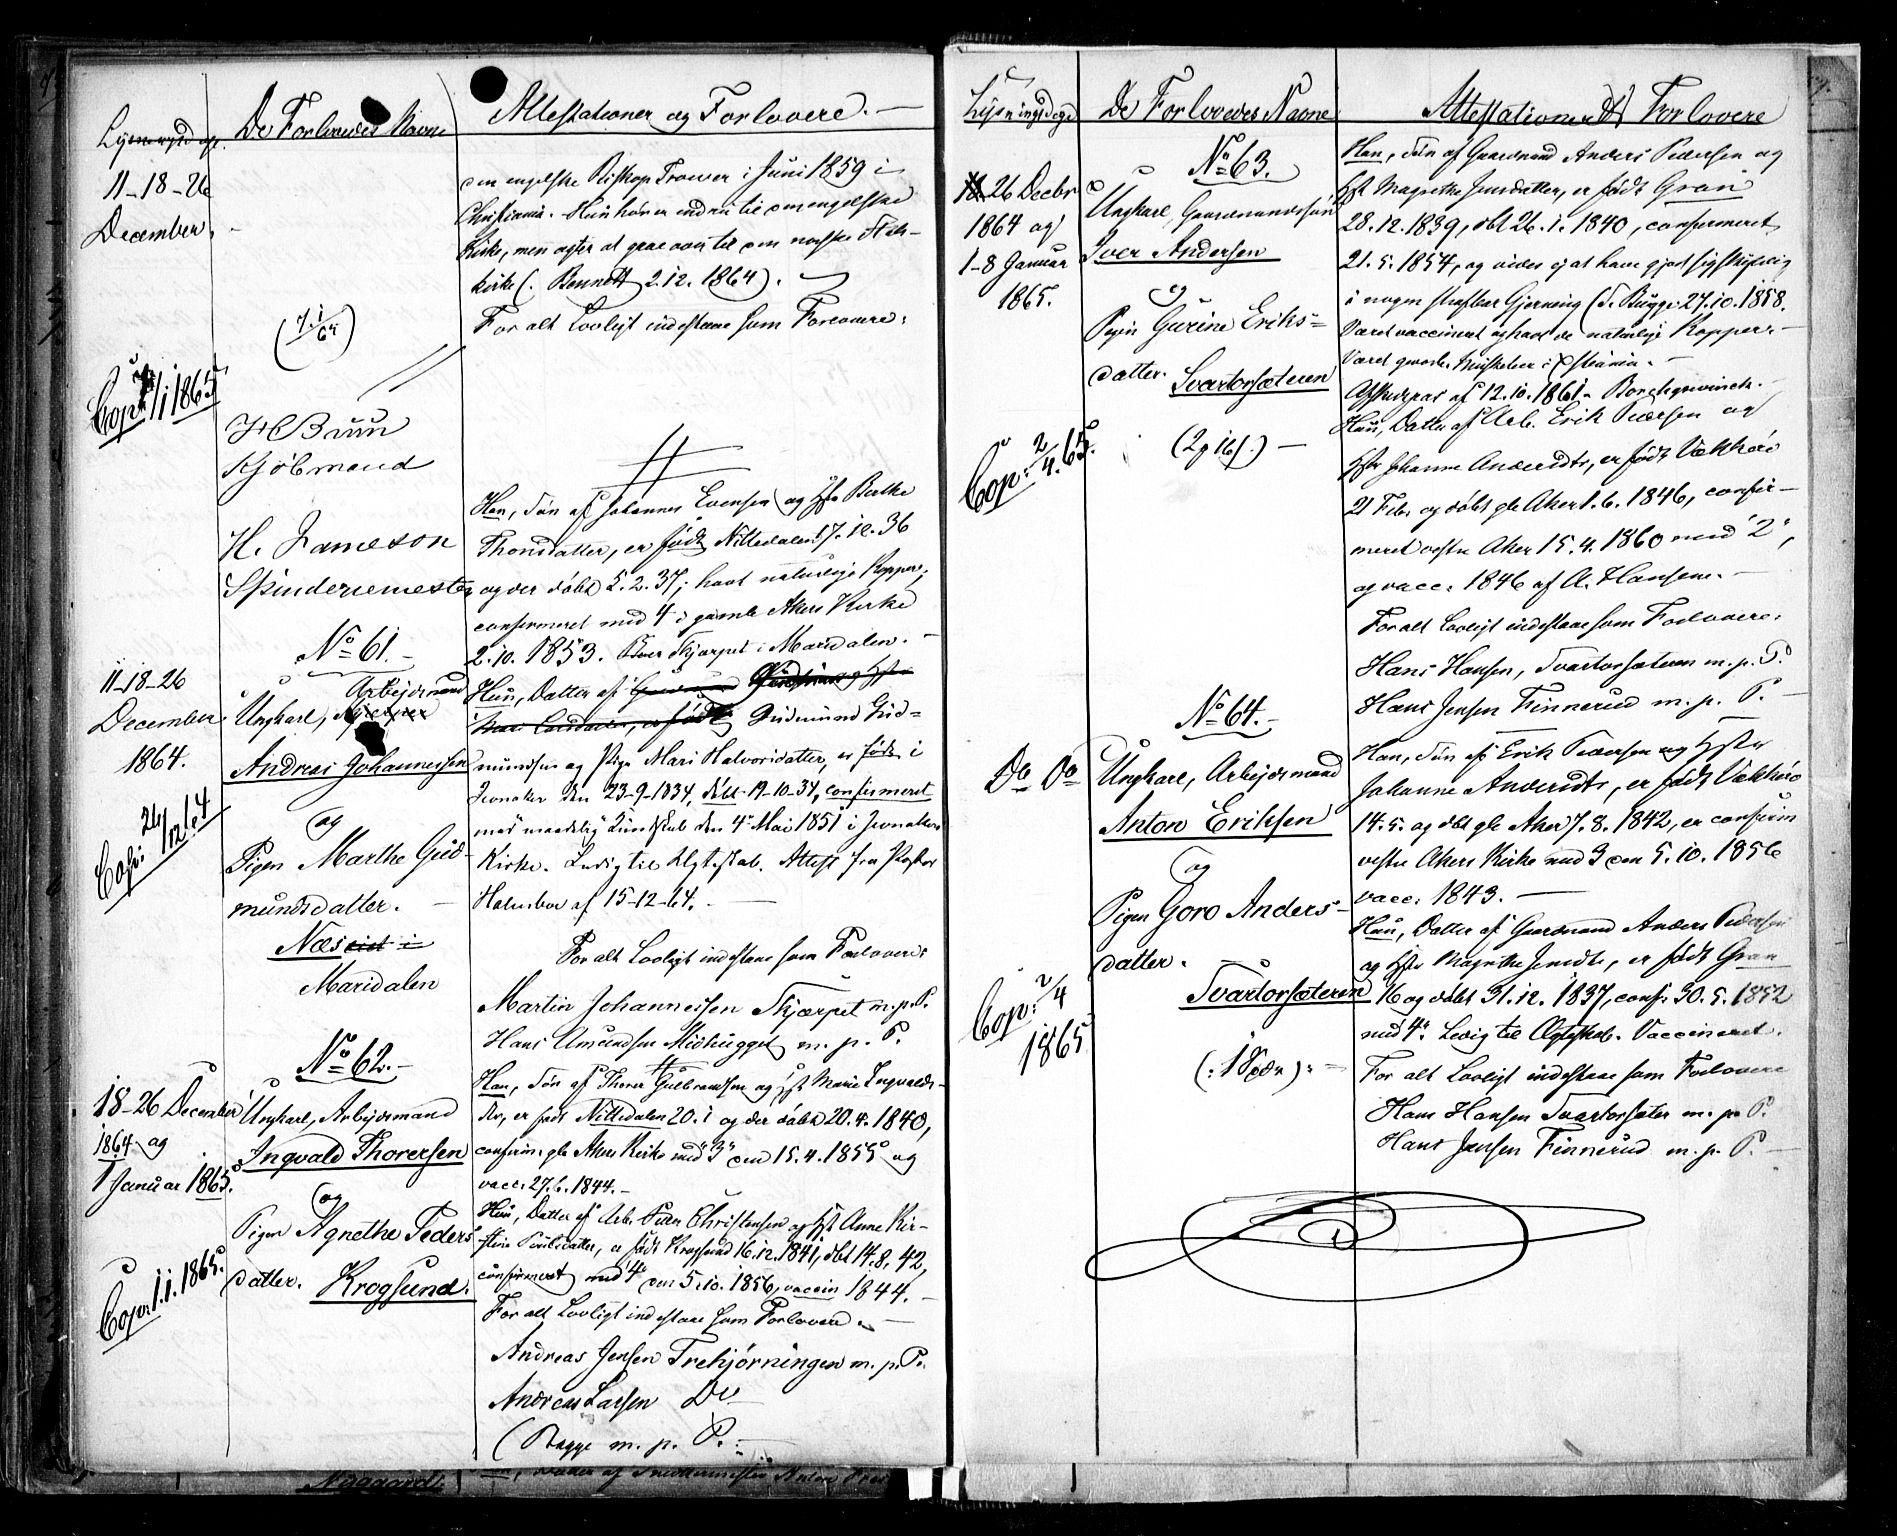 Lysningsdage.
De Forlovedes Navne
Attestationer og Forlovere. —
11–18–26
December.
den engelske Biskop Trower i Juni 1859 i
Christiania. Hun hører endnu til den engelske
Kirke, men agter at gaae over til den norske Stats-
kirke (. Bennett 2.12.1864).
For alt Lovligt indestaae som Forlovere:
Cop: 7/1 1865
H C Bruun
Kjøbmand
H. Jameson
Spinderiemester
No 61.
11–18–26
December
1864.
Ungkarl, Arbeidsmand
Andreas Johannessen
og
Pigen Marthe Gud-
mundsdatter.
Næs i
Maridalen
Cop: 26/12 64
Han, Søn af Johannes Evensen og Hst Berthe
Thorsdatter, er født Nittedalen 17.12.36
og der døbt 5.2.37; havt naturlige Kopper;
confirmeret med 4 i gamle Akers Kirke
2.10.1853. Boer Skjærpet i Maridalen. —
Hun, Datter af
Gudmund Gud-
mundsen og Pige Mari Halvorsdatter, er født i
Jevnaker den 23–9–1834, døbt 19–10–34, confirmeret
med maadelig Kundskab den 4de Mai 1851 i Jevnakers
Kirke. Ledig til Ægteskab. Attest fra Pastor
Holmboe af 15–12–64. —
For alt Lovligt indestaae som Forlovere:
Martin Johannessen Skjærpet m.p.P.
Hans Amundsen Midhugget m. p. P.
No 62. —
18–26 December
1864 og
1 Januar 1865.
Ungkarl, Arbejdsmand
Ingvald Thorersen
og
Pigen Agnethe Peders
datter. Krogsund.
Cop: 1.1.1865.
Han, Søn af Thorer Gulbrandsen og Hst Marie Ingvalds-
dtr, er født Nittedalen 20.1 og der døbt 20.4.1840,
confirm. gle Akers Kirke med "3" den 15.4.1855 og
vacc. 27.6.1844. —
Hun, Datter af Arb. Peder Christensen og Hst Anne Kir-
stine Poulsdatter, er født Krogsund 16.12.1841, dbt 14.8.42,
confirmeret med "4" den 5.10.1856, vaccin 1844. —
For alt Lovligt indestaae som Forlovere. —
Andreas Jensen Trehjørningen m.p.P.
Andreas Larsen Do
(Bugge m. p. P.
Lysningsdage
De Forlovedes Navne
Attestationer og Forlovere
No 63.
26 Decbr
1864 og
1–8 Januar
1865.
Ungkarl, Gaardmandssøn
Iver Andersen
og
Pigen Gurine Eriks-
datter. Svartorsæteren
Cop: 2/4.65.
Han, Søn af Gaardmand Anders Pedersen og
Hst Magrethe Jensdatter, er født Gran
28.12.1839, dbt 26.1.1840, confirmeret
21.5.1854, og vides ej at have gjort sig skyldig
i nogen strafbar Gjerning (S. Bugge 27.10.1858.
Været vaccineret og havt de naturlige Kopper. —
Været gevorb. Musketeer i Chstiania. —
Afskedpas af 12.10.1861. Borchgrevinck. —
Hun, Datter af Arb. Erik Pedersen og
Hst Johanne Andersdtr, er født Vækkerø
21 Febr og døbt gle Aker 1.6.1846, confir-
meret vestre Aker 15.4.1860 med "2",
og vacc. 1846 af A. Hansen. —
For alt Lovligt indestaae som Forlovere.
Hans Hansen, Svartorsæteren m. p. P.
Hans Jensen Finnerud m. p. P. —
No 64. —
Do Do
Ungkarl, Arbejdsmand
Anton Eriksen
og
Pigen Goro Anders-
datter. —
Svartorsæteren
Cop: 2/4
1865
Han, Søn af Erik Pedersen og Hst
Johanne Andersdtr, er født Vækkerø
14.5. og dbt gle Aker 7.8.1842, er confirm
vestre Akers Kirke med 3 den 5.10.1856
vacc. 1843. —
Hun, Datter af Gaardmand Anders Pedersen
og Hst Magrethe Jensdtr, er født Gran
16 og døbt 31.12.1837, conf. 30.5.1852
med "4". Ledig til Ægteskab. Vaccineret.
For alt Lovligt indestaae som Forlovere
Hans Hansen Svartorsæter m. p. P.
Hans Jensen Finnerud m. p. P. —